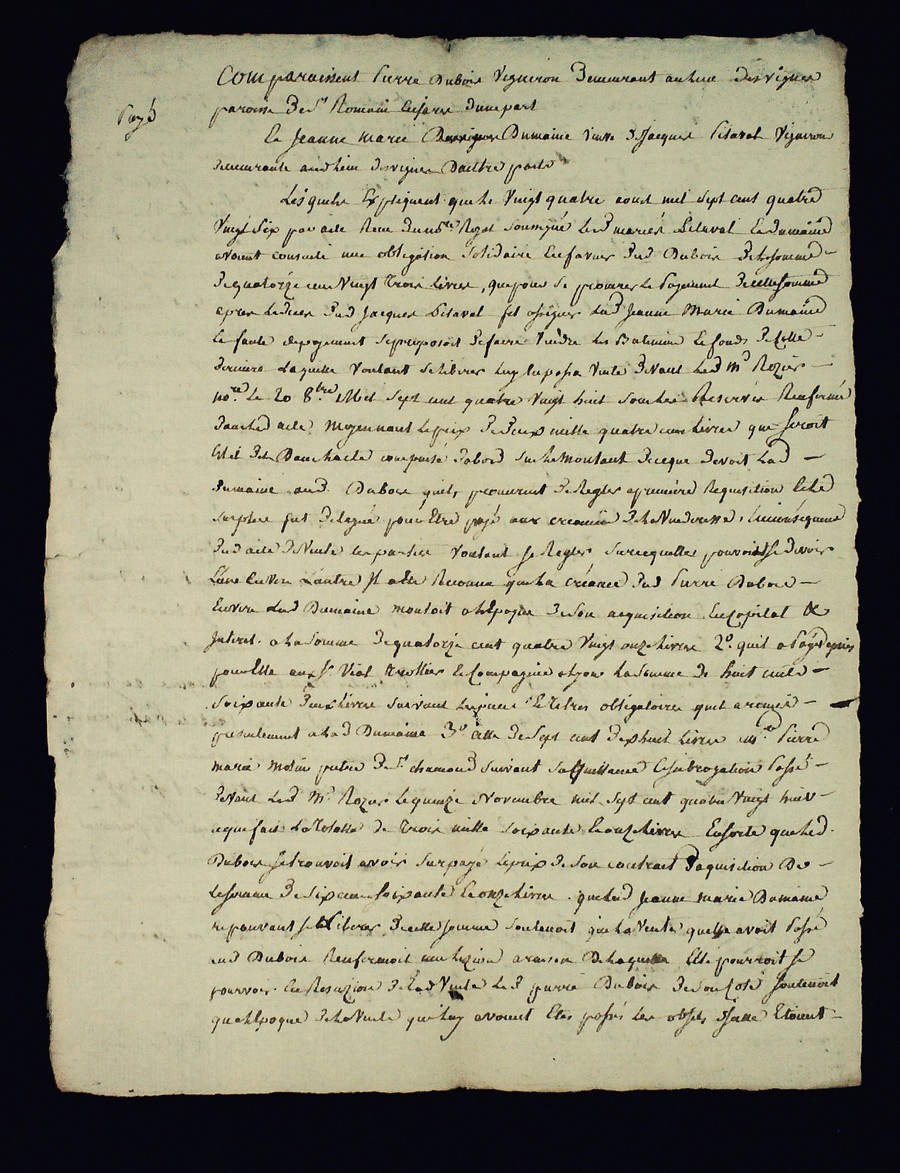 Comparoissent Pierre Dubois Vigneron demeurant au lieu des vignes
paroisse de St Romain en Jarez d'une part
Payé
Et Jeanne Marie Dumaine veuve de Jacques Pitaval Vigneron
demeurante audit lieu des vignes D'autre part
Lesquels Expliquent que le Vingt quatre aout mil sept cent quatre
Vingt Six par acte Recu du no.re Rozat soussigné Led mariés Pitaval Et Dumaine
avoient consenti une obligation Solidaire En faveur dud Dubois de la somme
De quatorze cent Vingt Trois livres, que pour se procurer Le Payement de cette somme
apres Le deces dud Jacques Pitaval fit assigner lad Jeanne Marie Dumaine
Et faute de payement se proposoit de faire Vendre Les Batiments Et fonds de cette
derniere Laquelle Voulant se liberer Luy En passa Vente devant Led Me Rozier
no.re Le 20 8bre Mil Sept cent quatre Vingt huit sous les Reserves Renfermés
dans led acte Moyennant Le prix de deux mille quatre cent livres qui seroit
Est il dit Dans led acte compensé d'abord sur le montant de ce que devoit Lad
dumaine aud Dubois qu'ils promirent de Regler a premiere Requisition Et le
surplus fut delegué pour Etre payé aux creanciers de la Venderesse, En consequence
dud acte de Vente Les parties Voulant se Regler sur ce qu'elles pouvoient se devoir
L'une Envers L'autre Il a Eté Reconnu que La créance dud Pierre Dubois
Envers Lad Dumaine montoit a l'Epoque de son acquisition En Capital &
Interet a la somme de quatorze cent quatre Vingt onze livres 2° quil a Payé depuis
pour Elle aux Srs Vial Et Compagnie a Lyon La somme de huit cent
soixante deux livres suivant Les pieces Et Titres obligatoires qu'il a remis
presentement a Lad Dumaine 3° Celle de Sept cent dix huit livres a Pierre
marie de St chamond suivant sa quittance Et subrogation Passé
devant Led Me Rozier Le quinze Novembre mil sept cent quatre Vingt huit
ce qui fait La Totalle de Trois mille soixante Et onze livres En sorte que led
Dubois se trouvoit avoir surpayé Le prix de son contrat D'aquisition De
la somme de six cent soixante Et onze livres. que lad Jeanne marie Dumaine
ne pouvant se Liberer de cette somme soutenoit que La Vente quelle avoit Passé
aud Dubois Renfermoit une Lezion a raison de laquelle Elle pourroit se
pourvoir En Resizion de Lad Vente Led pierre Dubois de son Coté soutenoit
qua l'Epoque de la Vente qui Luy avoient Etés passés Les objets d'icelle Etoient